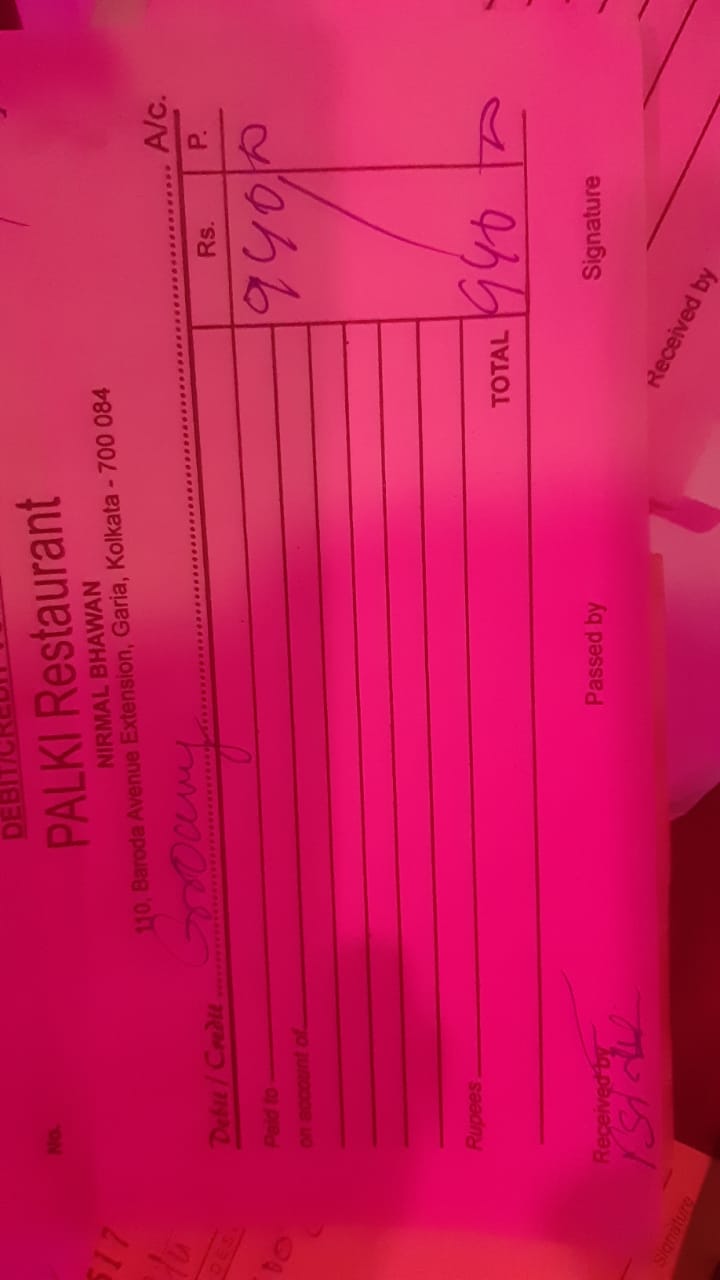 DEBIT/CREDIT
No.
PALKI Restaurant
NIRMAL BHAWAN
110, Baroda Avenue Extension, Garia, Kolkata - 700 084
Debit / Credit Grocery A/c.
Rs. P.
Paid to 940
on account of
Rupees TOTAL 940
Received by Passed by Signature
Received by
Signature
517